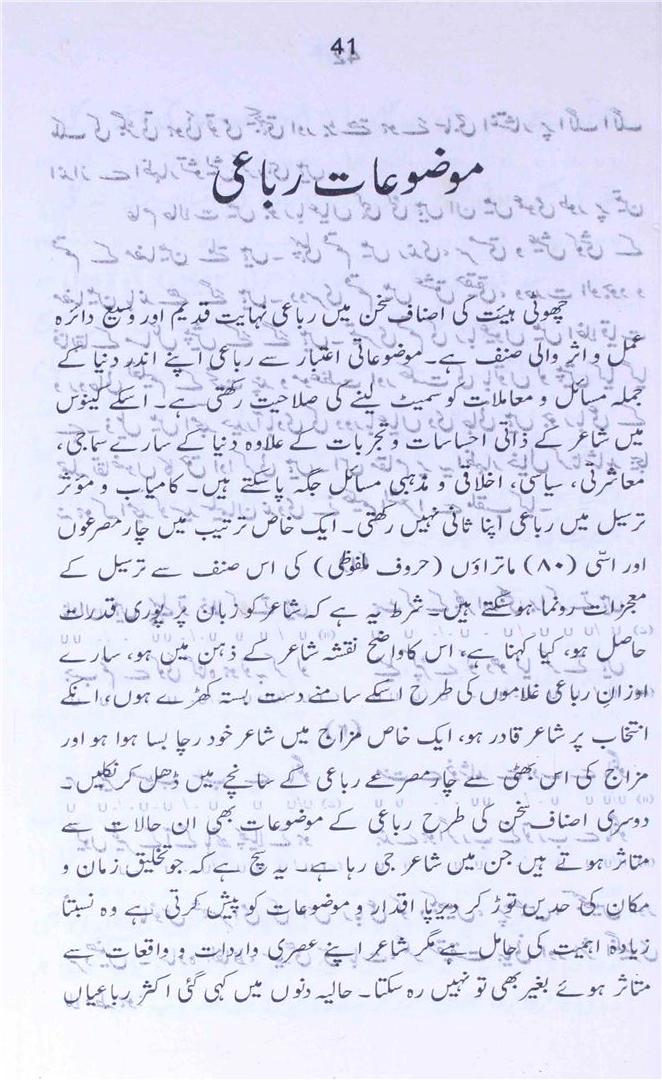 41
موضوعات رباعی
چھوٹی ہیئت کی اصناف سخن میں رباعی نہایت قدیم اور وسیع دائرہ
عمل و اثر والی صنف ہے۔ موضوعاتی اعتبار سے رباعی اپنے اندر دنیا کے
جملہ مسائل و معاملات کو سمیٹ لینے کی صلاحیت رکھتی ہے۔ اسکے کینوس
میں شاعر کے ذاتی احساسات و تجربات کے علاوہ دنیا کے سارے سماجی،
معاشرتی، سیاسی، اخلاقی و مذہبی مسائل جگہ پاسکتے ہیں۔ کامیاب و مؤثر
ترسیل میں رباعی اپنا ثانی نہیں رکھتی۔ ایک خاص ترتیب میں چار مصرعوں
اور اسّی (۸۰) ماتراؤں (حروف ملفوظی) کی اس صنف سے ترسیل کے
معجزات رونما ہوسکتے ہیں۔ شرط یہ ہے کہ شاعر کو زبان پر پوری قدرت
حاصل ہو، کیا کہنا ہے، اس کا واضح نقشہ شاعر کے ذہن میں ہو، سارے
اوزانِ رباعی غلاموں کی طرح اسکے سامنے دست بستہ کھڑے ہوں، انکے
انتخاب پر شاعر قادر ہو، ایک خاص مزاج میں شاعر خود رچا بسا ہوا ہو اور
مزاج کی اس بھٹی سے چار مصرعے رباعی کے سانچے میں ڈھل کر نکلیں۔
دوسری اصناف سخن کی طرح رباعی کے موضوعات بھی ان حالات سے
متاثر ہوتے ہیں جن میں شاعر جی رہا ہے۔ یہ سچ ہے کہ جو تخلیق زمان و
مکان کی حدیں توڑ کر دیرپا اقدار و موضوعات کو پیش کرتی ہے وہ نسبتاً
زیادہ اہمیت کی حامل ہے مگر شاعر اپنے عصری واردات و واقعات سے
متاثر ہوئے بغیر بھی تو نہیں رہ سکتا۔ حالیہ دنوں میں کہی گئی اکثر رباعیاں